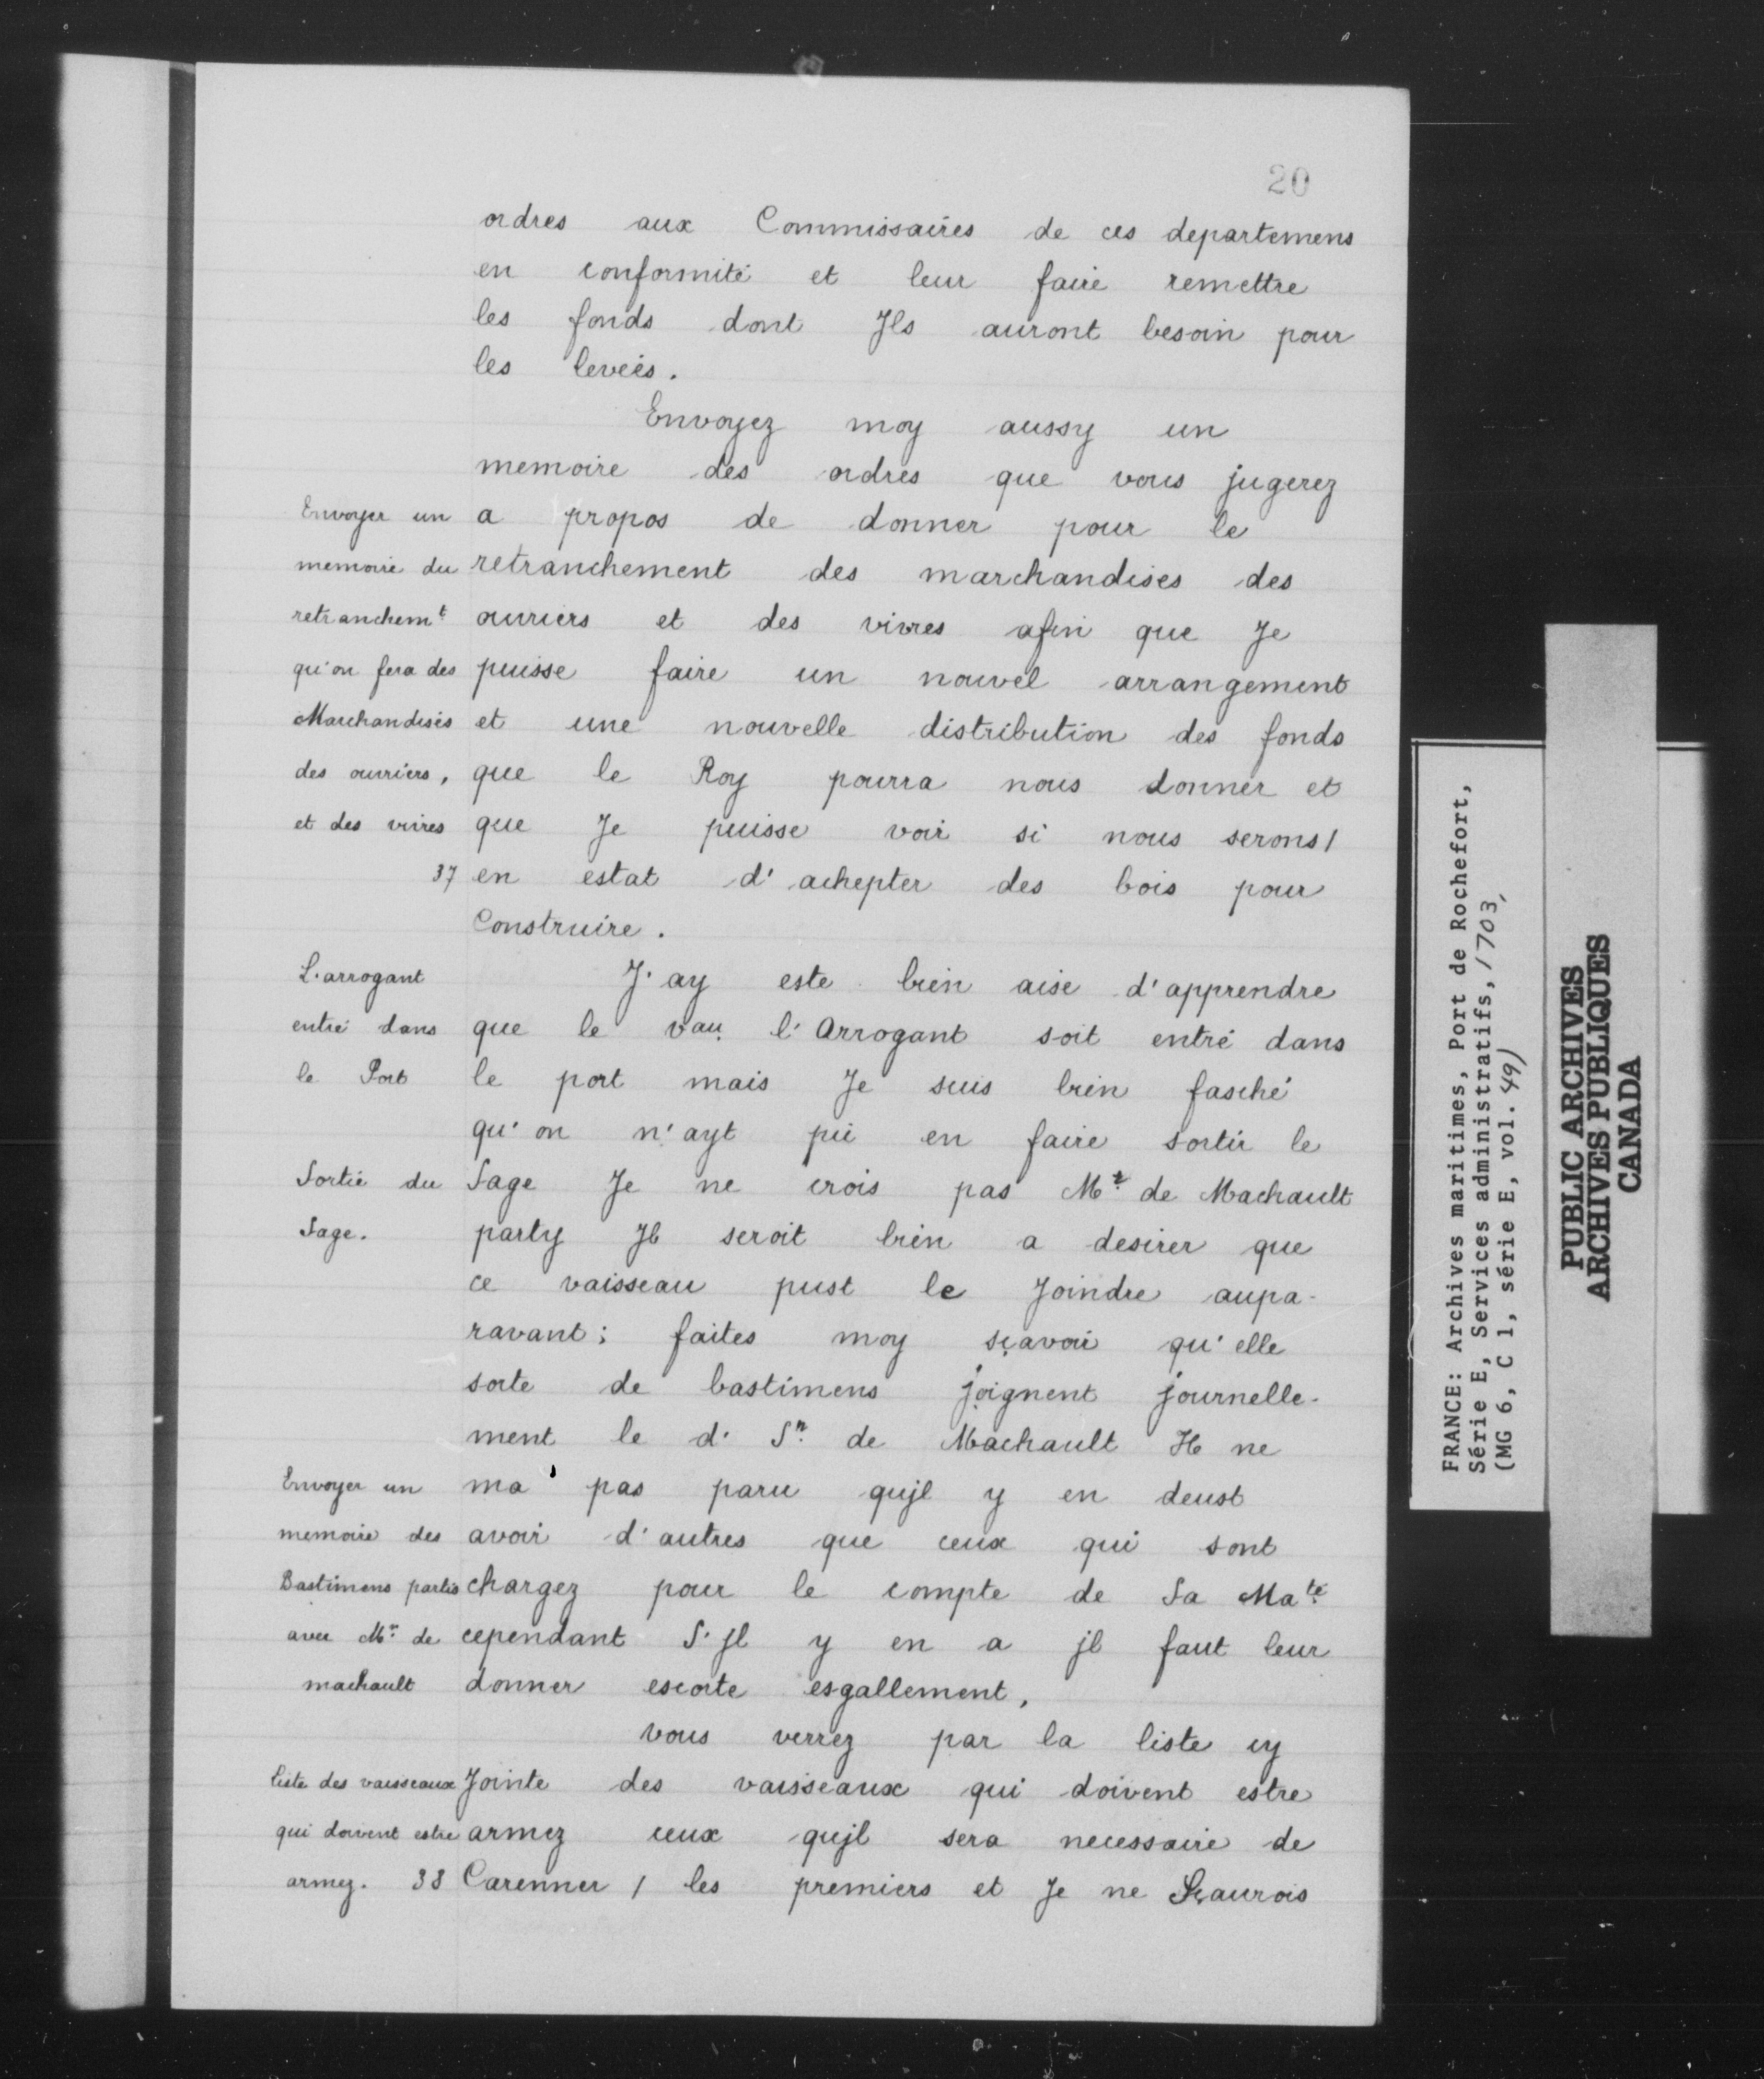 20
ordres aux Commissaires de ces departemens
en conformité et leur faire remettre
les fonds dont Jls auront besoin pour
les levées.
Envoyez moy aussy un
memoire des ordres que vous jugerez
a propos de donner pour le
retranchement des marchandises des
ouvriers et des vivres afin que Je
puisse faire un nouvel arrangement
et une nouvelle distribution des fonds
que le Roy pourra nous donner et
que Je puisse voir si nous serons /
en estat d'achepter des bois pour
Construire.
Envoyer un
memoire du
retranchemt
qu'on fera des
Marchandises
des ouvriers,
et des vivres
37
J'ay este bien aise d'apprendre
que le vau. l'Arrogant soit entré dans
le port mais Je suis bien fasché
qu'on n'ayt pû en faire sortir le
Sage Je ne crois pas Mr. de Machault
party Jl seroit bien a desirer que
ce vaisseau pust le Joindre aupa-
ravant; faites moy sçavoir qu'elle
sorte de bastimens joignent journelle-
ment le d. Sr. de Machault Jl ne
ma pas paru qujl y en deust
avoir d'autres que ceux qui sont
chargez pour le compte de Sa Maté
cependant S'Jl y en a jl faut leur
donner escorte esgallement,
L'arrogant
entré dans
le Port
Sortie du
Sage.
Envoyer un
memoire des
Bastimens partis
avec Mr. de
machault
vous verrez par la liste cy
Jointe des vaisseaux qui doivent estre
armez ceux qujl sera necessaire de
Carenner / les premiers et Je ne Sçaurois
liste des vaisseaux
qui doivent estre
armez. 38
FRANCE: Archives maritimes, Port de Rochefort,
Série E, Services administratifs, 1703,
(MG 6, C 1, série E, vol. 49)
PUBLIC ARCHIVES
ARCHIVES PUBLIQUES
CANADA